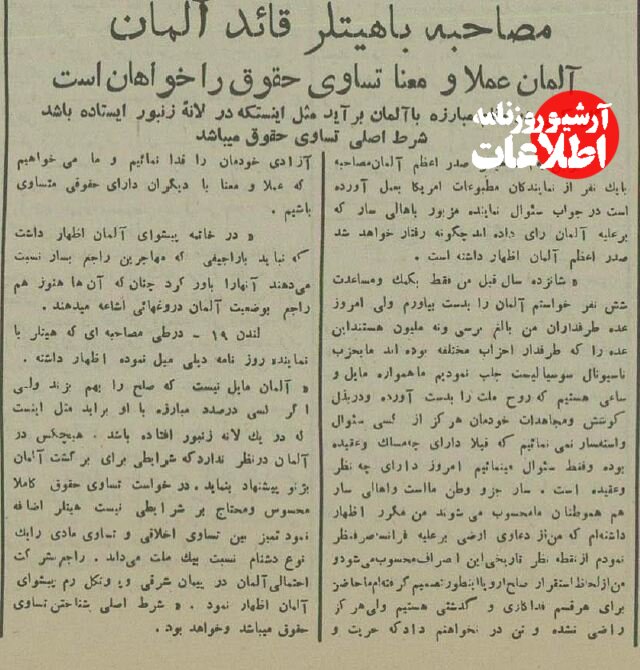 مصاحبه باهیتلر قائد آلمان
آلمان عملا و معنا تساوی حقوق را خواهان است
مبارزه باآلمان برآید مثل اینستکه در لانهٔ زنبور ایستاده باشد
شرط اصلی تساوی حقوق میباشد
آرشیو روزنامه
اطلاعات
صدر اعظم آلمان مصاحبه
بایك نفر از نمایندگان مطبوعات امریکا بعمل آورده
است در جواب سئوال نماینده مزبور باهالی سار که
برعلیه آلمان رای داده اند چگونه رفتار خواهد شد
صدر اعظم آلمان اظهار داشته است .
« شانزده سال قبل من فقط بکمك ومساعدت
شش نفر خواستم آلمان را بدست بیاورم ولی امروز
عده طرفداران من بالغ برسی ونه ملیون هستنداین
عده را که طرفدار احزاب مختلفه بوده اند مابحزب
ناسیونال سوسیالیست جلب نمودیم ماهمواره مایل و
ساعی هستیم که روح ملت را بدست آورده ودربذل
کوشش ومجاهدات خودمان هرگز از کسی سئوال
واستفسار نمی نمائیم که قبلا دارای چه مسلك وعقیده
بوده وفقط سئوال مینمائیم امروز دارای چه نظر
وعقیده است . سار جزو وطن مااست واهالی سار
هم هموطنان مامحسوب می شوند من مکرر اظهار
داشته‌ام که من از دعاوی ارضی برعلیه فرانسه صرفنظر
نمودم ازنقطه نظر تاریخی این انصراف محسوب می‌شود و
من ازلحاظ استقرار صلح اروپا اینطور تصمیم گرفته‌ام ماحاضر
برای هرقسم فداکاری و گذشتی هستیم ولی هرگز
راضی نشده و تن در نخواهیم داد که حریت و
آزادی خودمان را فدا نمائیم و ما می خواهیم
که عملا و معنا با دیگران دارای حقوقی متساوی
باشیم .
« در خاتمه پیشوای آلمان اظهار داشت
که نباید باراجیفی که مهاجرین راجع بسار نسبت
می‌دهند آنهارا باور کرد چنان که آن ها هنوز هم
راجع بوضعیت آلمان دروغهائی اشاعه میدهند .
لندن ۱۹ - درطی مصاحبه ای که هیتلر با
نماینده روز نامه دیلی میل نموده اظهار داشته .
« آلمان مایل نیست که صلح را بهم بزند ولی
اگر کسی درصدد مبارزه با او براید مثل اینست
که در یك لانه زنبور افتاده باشد . هیچکس در
آلمان در نظر ندارد که شرایطی برای برگشت آلمان
بژنو پیشنهاد بنماید . در خواست تساوی حقوق کاملا
محسوس ومحتاج بر شرایطی نیست هیتلر اضافه
نمود تمیز بین تساوی اخلاقی و تساوی مادی رایك
نوع دشنام نسبت بیك ملت می‌داند . راجع شرکت
احتمالی آلمان در پیمان شرقی و رم پیشوای
آلمان اظهار نمود . « شرط اصلی شناختن تساوی
حقوق میباشد وخواهد بود .